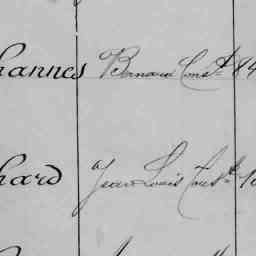 hannes Bernard Const 84
hard Jean Louis Const